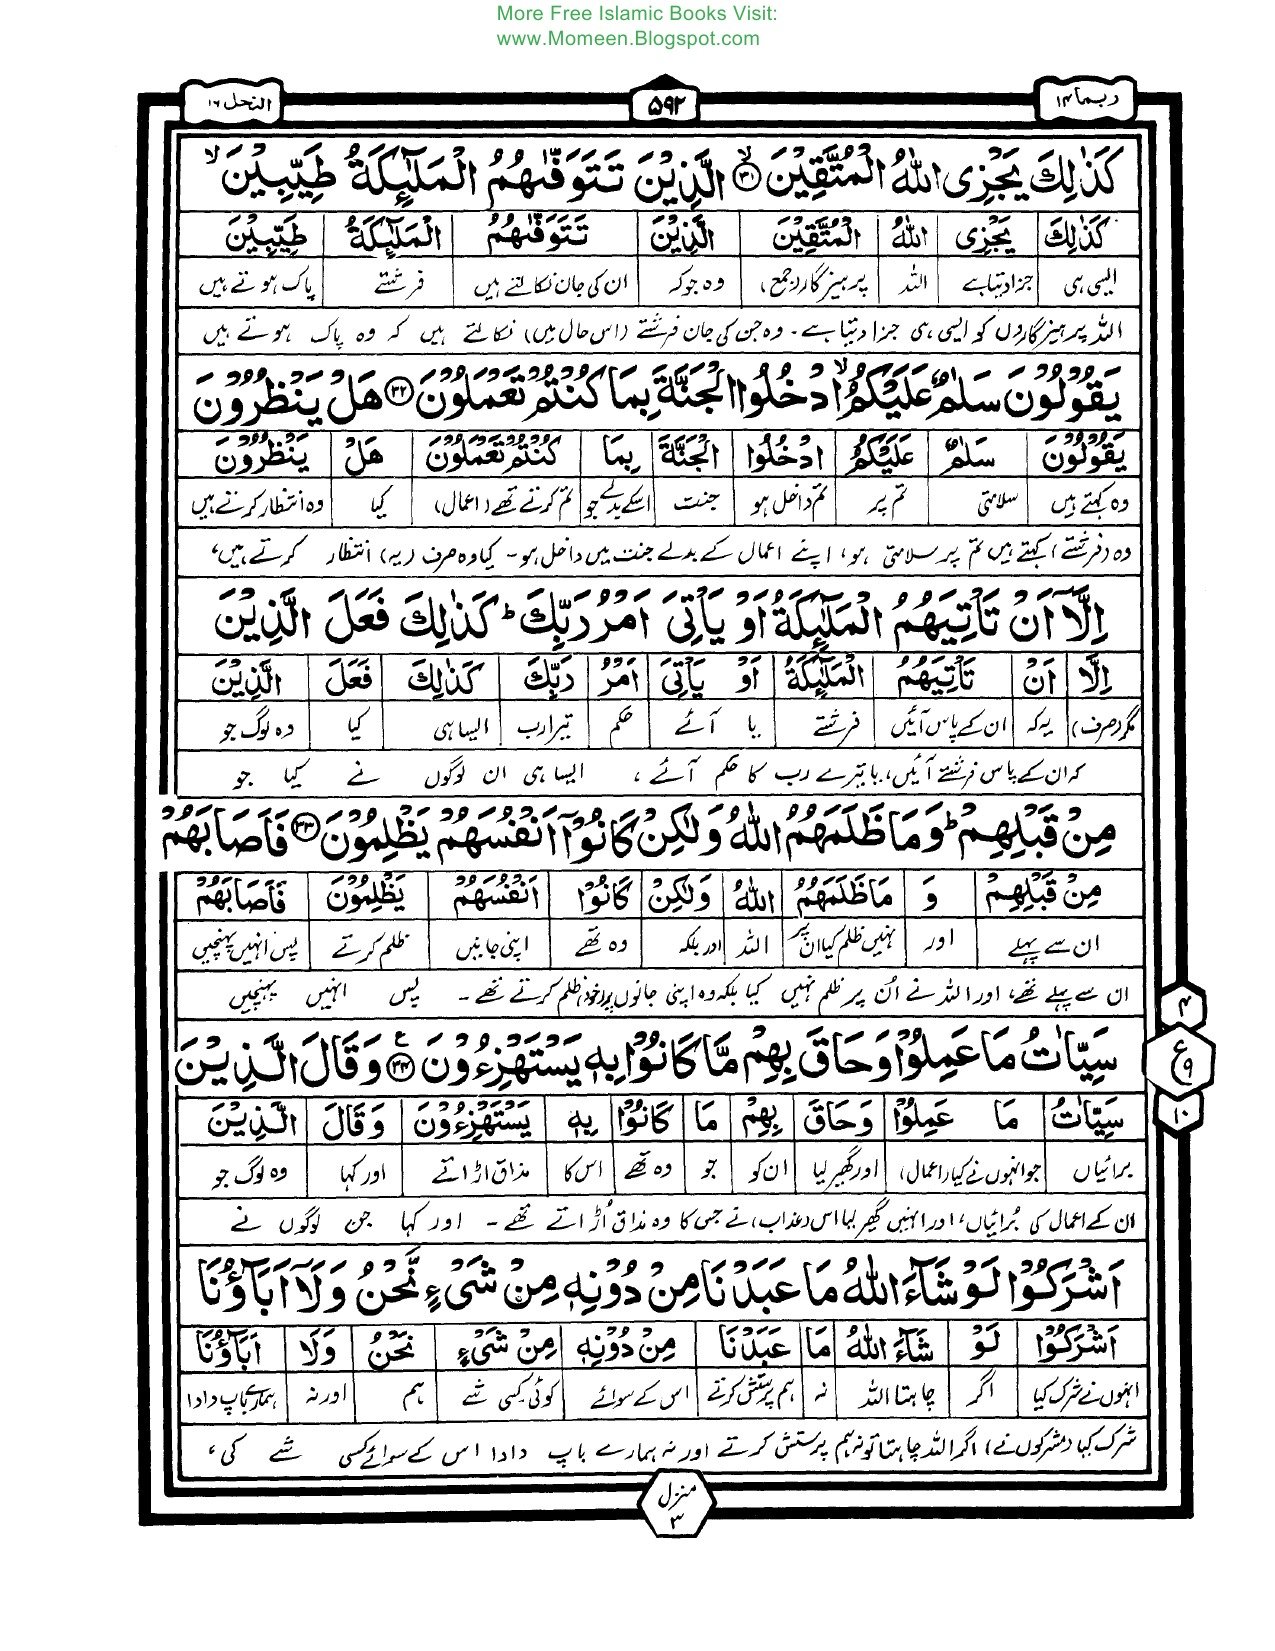 More Free Islamic Books Visit:
www.Momeen.Blogspot.com
ربما ۱۴
۵۹۲
النحل ۱۶
كَذٰلِكَ يَجْزِى اللّٰهُ الْمُتَّقِيْنَ ۙ﴿۳۱﴾ الَّذِيْنَ تَتَوَفّٰىهُمُ الْمَلٰٓئِكَةُ طَيِّبِيْنَ ۙ
كَذٰلِكَ يَجْزِى اللّٰهُ الْمُتَّقِيْنَ الَّذِيْنَ تَتَوَفّٰىهُمُ الْمَلٰٓئِكَةُ طَيِّبِيْنَ
ایسی ہی جزا دیتا ہے اللہ پرہیزگار (جمع) وہ جو کہ ان کی جان نکالتے ہیں فرشتے پاک ہوتے ہیں
اللہ پرہیزگاروں کو ایسی ہی جزا دیتا ہے۔ وہ جن کی جان فرشتے (اس حال میں) نکالتے ہیں کہ وہ پاک ہوتے ہیں
يَقُوْلُوْنَ سَلٰمٌ عَلَيْكُمُ ۙ ادْخُلُوا الْجَنَّةَ بِمَا كُنْتُمْ تَعْمَلُوْنَ ﴿۳۲﴾ هَلْ يَنْظُرُوْنَ
يَقُوْلُوْنَ سَلٰمٌ عَلَيْكُمُ ادْخُلُوا الْجَنَّةَ بِمَا كُنْتُمْ تَعْمَلُوْنَ هَلْ يَنْظُرُوْنَ
وہ کہتے ہیں سلامتی تم پر تم داخل ہو جنت اسکے بدلے جو تم کرتے تھے (اعمال) کیا وہ انتظار کرتے ہیں
وہ (فرشتے) کہتے ہیں تم پر سلامتی ہو، اپنے اعمال کے بدلے جنت میں داخل ہو۔ کیا وہ صرف (یہ) انتظار کرتے ہیں،
اِلَّاۤ اَنْ تَاْتِيَهُمُ الْمَلٰٓئِكَةُ اَوْ يَاْتِىَ اَمْرُ رَبِّكَ ؕ كَذٰلِكَ فَعَلَ الَّذِيْنَ
اِلَّاۤ اَنْ تَاْتِيَهُمُ الْمَلٰٓئِكَةُ اَوْ يَاْتِىَ اَمْرُ رَبِّكَ كَذٰلِكَ فَعَلَ الَّذِيْنَ
مگر (صرف) یہ کہ ان کے پاس آئیں فرشتے یا آئے حکم تیرا رب ایسا ہی کیا وہ لوگ جو
کہ ان کے پاس فرشتے آئیں، یا تیرے رب کا حکم آئے، ایسا ہی ان لوگوں نے کیا جو
مِنْ قَبْلِهِمْ ؕ وَمَا ظَلَمَهُمُ اللّٰهُ وَلٰكِنْ كَانُوْۤا اَنْفُسَهُمْ يَظْلِمُوْنَ ﴿۳۳﴾ فَاَصَابَهُمْ
مِنْ قَبْلِهِمْ وَ مَا ظَلَمَهُمُ اللّٰهُ وَلٰكِنْ كَانُوْۤا اَنْفُسَهُمْ يَظْلِمُوْنَ فَاَصَابَهُمْ
ان سے پہلے اور نہیں ظلم کیا ان پر اللہ اور بلکہ وہ تھے اپنی جانیں ظلم کرتے پس انہیں پہنچیں
ان سے پہلے تھے، اور اللہ نے اُن پر ظلم نہیں کیا بلکہ وہ اپنی جانوں پر (خود) ظلم کرتے تھے۔ پس انہیں پہنچیں
سَيِّاٰتُ مَا عَمِلُوْا وَحَاقَ بِهِمْ مَّا كَانُوْا بِهٖ يَسْتَهْزِءُوْنَ ۧ﴿۳۴﴾ وَقَالَ الَّذِيْنَ
۴
ع
۹
۱۰
سَيِّاٰتُ مَا عَمِلُوْا وَحَاقَ بِهِمْ مَا كَانُوْا بِهٖ يَسْتَهْزِءُوْنَ وَقَالَ الَّذِيْنَ
برائیاں جو انہوں نے کیا (اعمال) اور گھیر لیا ان کو جو وہ تھے اس کا مذاق اڑاتے اور کہا وہ لوگ جو
ان کے اعمال کی بُرائیاں، اور انہیں گھیر لیا اس (عذاب) نے جس کا وہ مذاق اُڑاتے تھے۔ اور کہا جن لوگوں نے
اَشْرَكُوْا لَوْ شَآءَ اللّٰهُ مَا عَبَدْنَا مِنْ دُوْنِهٖ مِنْ شَىْءٍ نَّحْنُ وَلَاۤ اٰبَآؤُنَا
اَشْرَكُوْا لَوْ شَآءَ اللّٰهُ مَا عَبَدْنَا مِنْ دُوْنِهٖ مِنْ شَىْءٍ نَحْنُ وَلَا اٰبَآؤُنَا
انہوں نے شرک کیا اگر چاہتا اللہ نہ ہم پرستش کرتے اس کے سوائے کوئی کسی شے ہم اور نہ ہمارے باپ دادا
شرک کیا (مشرکوں نے) اگر اللہ چاہتا تو نہ ہم پرستش کرتے اور نہ ہمارے باپ دادا اس کے سوائے کسی شے کی،
منزل
۳